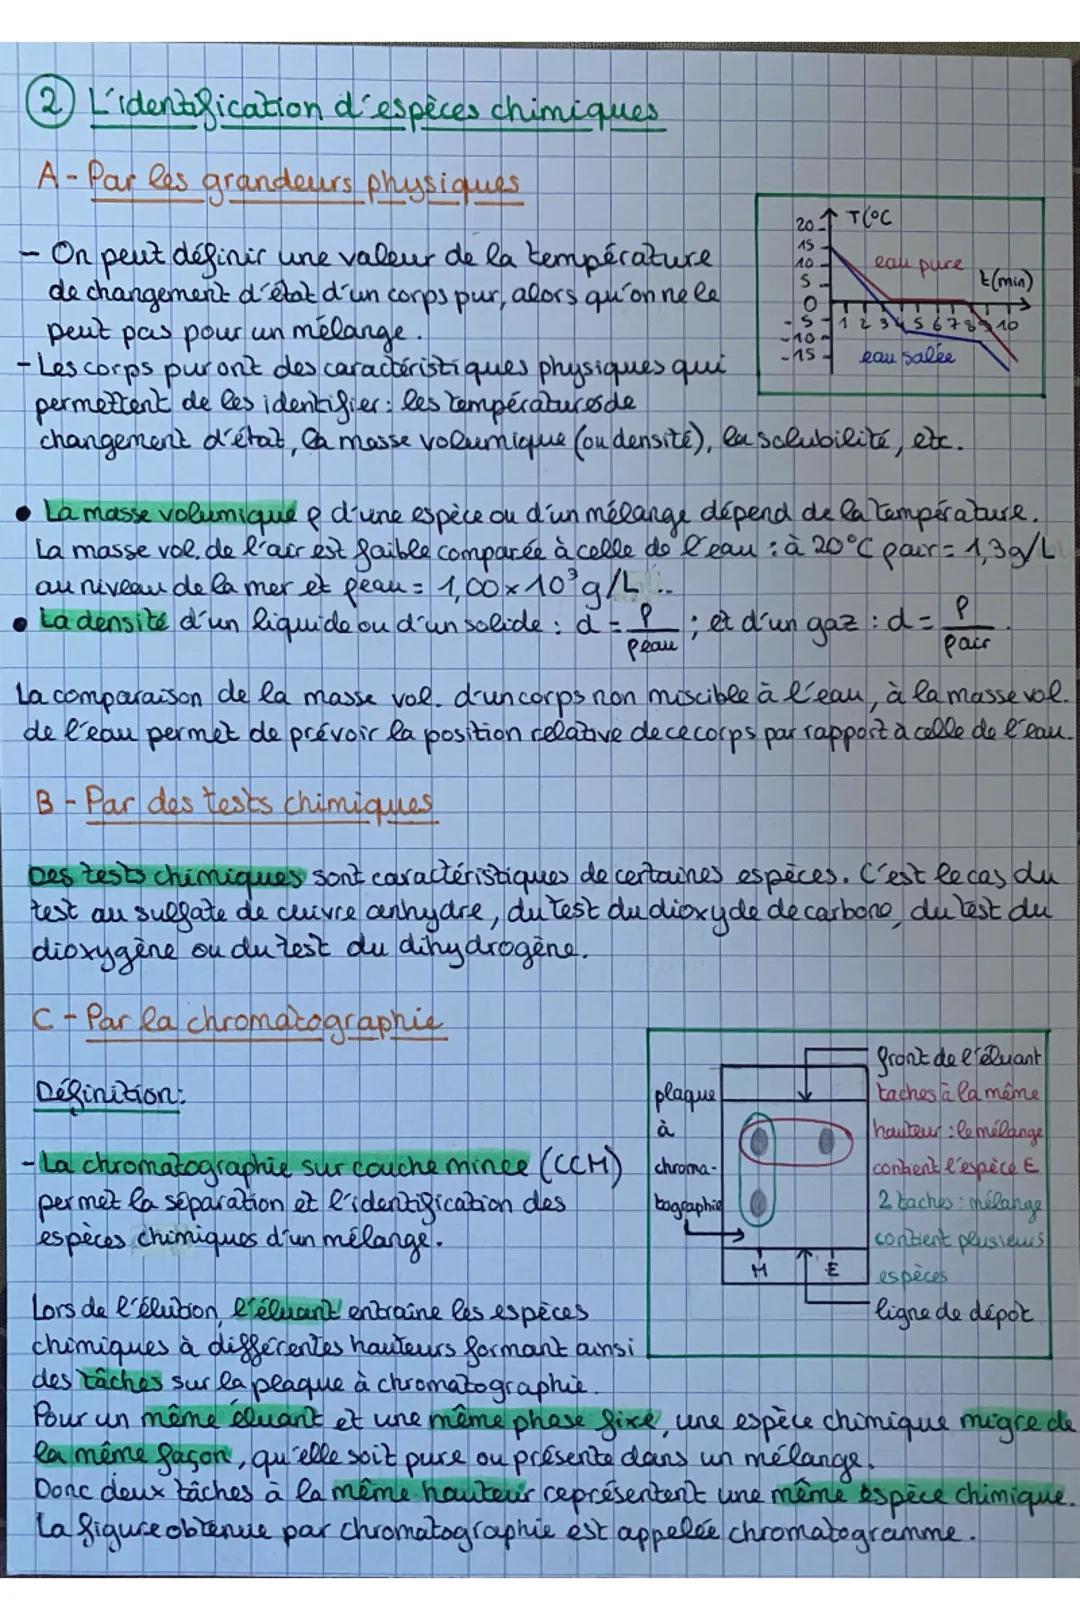 2 L'identification d'espèces chimiques
A - Par les grandeurs physiques
- On peut définir une valeur de la température
de changement d'état d'un corps pur, alors qu'on ne le
peut pas pour un mélange.
- Les corps pur ont des caractéristiques physiques qui
permettent de les identifier : les températures de
changement d'état, la masse volumique (ou densité), la solubilité, etc.
20 T(°C
15
10 eau pure
5 t(min)
0
-5 1 2 3 4 5 6 7 8 9 10
-10
-15 eau salée
• La masse volumique ρ d'une espèce ou d'un mélange dépend de la température.
La masse vol. de l'air est faible comparée à celle de l'eau : à 20°C ρair = 1,3g/L
au niveau de la mer et ρeau = 1,00 × 10³ g/L..
• La densité d'un liquide ou d'un solide : d = ρ/ρeau ; et d'un gaz : d = ρ/ρair.
La comparaison de la masse vol. d'un corps non miscible à l'eau, à la masse vol.
de l'eau permet de prévoir la position relative de ce corps par rapport à celle de l'eau.
B - Par des tests chimiques
Des tests chimiques sont caractéristiques de certaines espèces. C'est le cas du
test au sulfate de cuivre anhydre, du test du dioxyde de carbone, du test du
dioxygène ou du test du dihydrogène.
C - Par la chromatographie
Définition :
- La chromatographie sur couche mince (CCM)
permet la séparation et l'identification des
espèces chimiques d'un mélange.
plaque
à
chroma-
tographie
M E
front de l'éluant
taches à la même
hauteur : le mélange
contient l'espèce E
2 taches : mélange
contient plusieurs
espèces
ligne de dépôt
Lors de l'élution, l'éluant entraine les espèces
chimiques à différentes hauteurs formant ainsi
des tâches sur la plaque à chromatographie.
Pour un même éluant et une même phase fixe, une espèce chimique migre de
la même façon, qu'elle soit pure ou présente dans un mélange.
Donc deux tâches à la même hauteur représentent une même espèce chimique.
La figure obtenue par chromatographie est appelée chromatogramme.